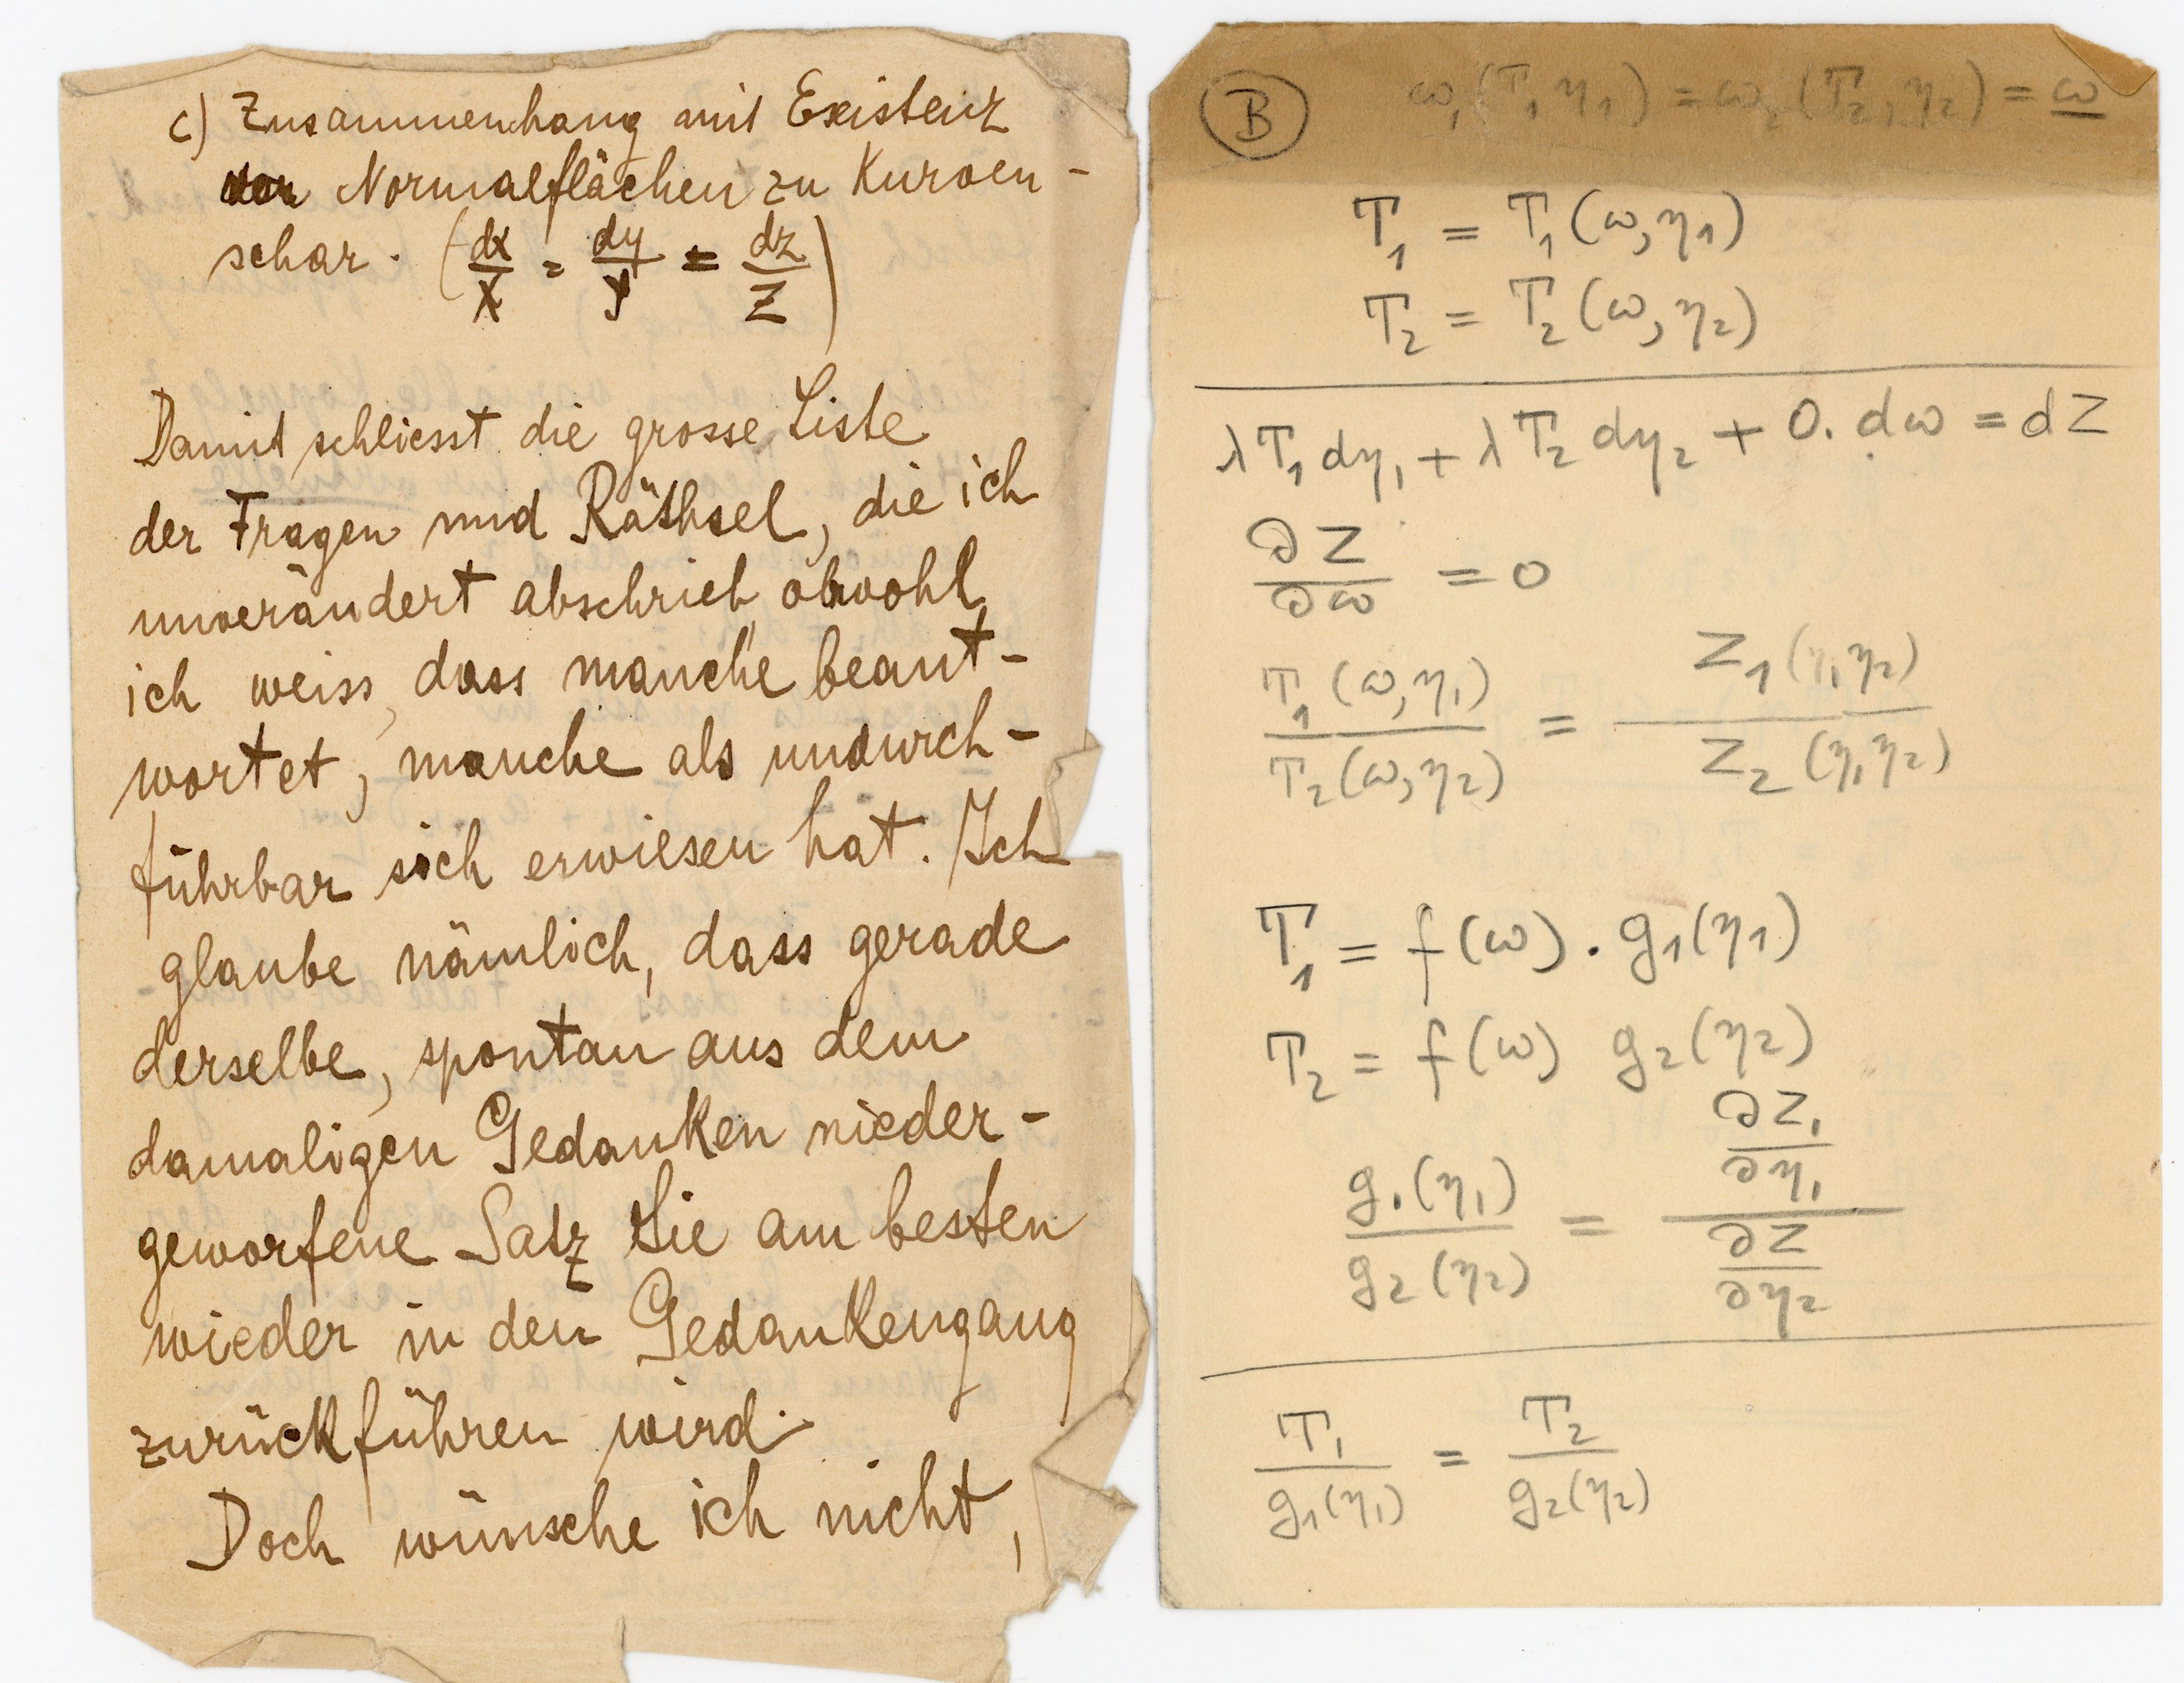 c) Zusammenhang mit Existenz
von Normalflächen zu Kurven-
schar. (dx/X = dy/Y = dz/Z)
Damit schliesst die grosse Liste
der Fragen und Räthsel, die ich
unverändert abschrieb, obwohl
ich weiss, dass manche beant-
wortet, manche als undurch-
führbar sich erwiesen hat. Ich
glaube nämlich, dass gerade
derselbe, spontan aus dem
damaligen Gedanken nieder-
geworfene Satz Sie am besten
wieder in den Gedankengang
zurückführen wird.
Doch wünsche ich nicht,
B ω₁(T₁η₁) = ω₂(T₂,η₂) = ω
T₁ = T₁(ω,η₁)
T₂ = T₂(ω,η₂)
λT₁dη₁ + λT₂dη₂ + 0. dω = dZ
∂Z/∂ω = 0
T₁(ω,η₁)/T₂(ω,η₂) = Z₁(η₁η₂)/Z₂(η₁η₂)
T₁ = f(ω) . g₁(η₁)
T₂ = f(ω) g₂(η₂)
g₁(η₁)/g₂(η₂) = ∂Z₁/∂η₁ / ∂Z/∂η₂
T₁/g₁(η₁) = T₂/g₂(η₂)